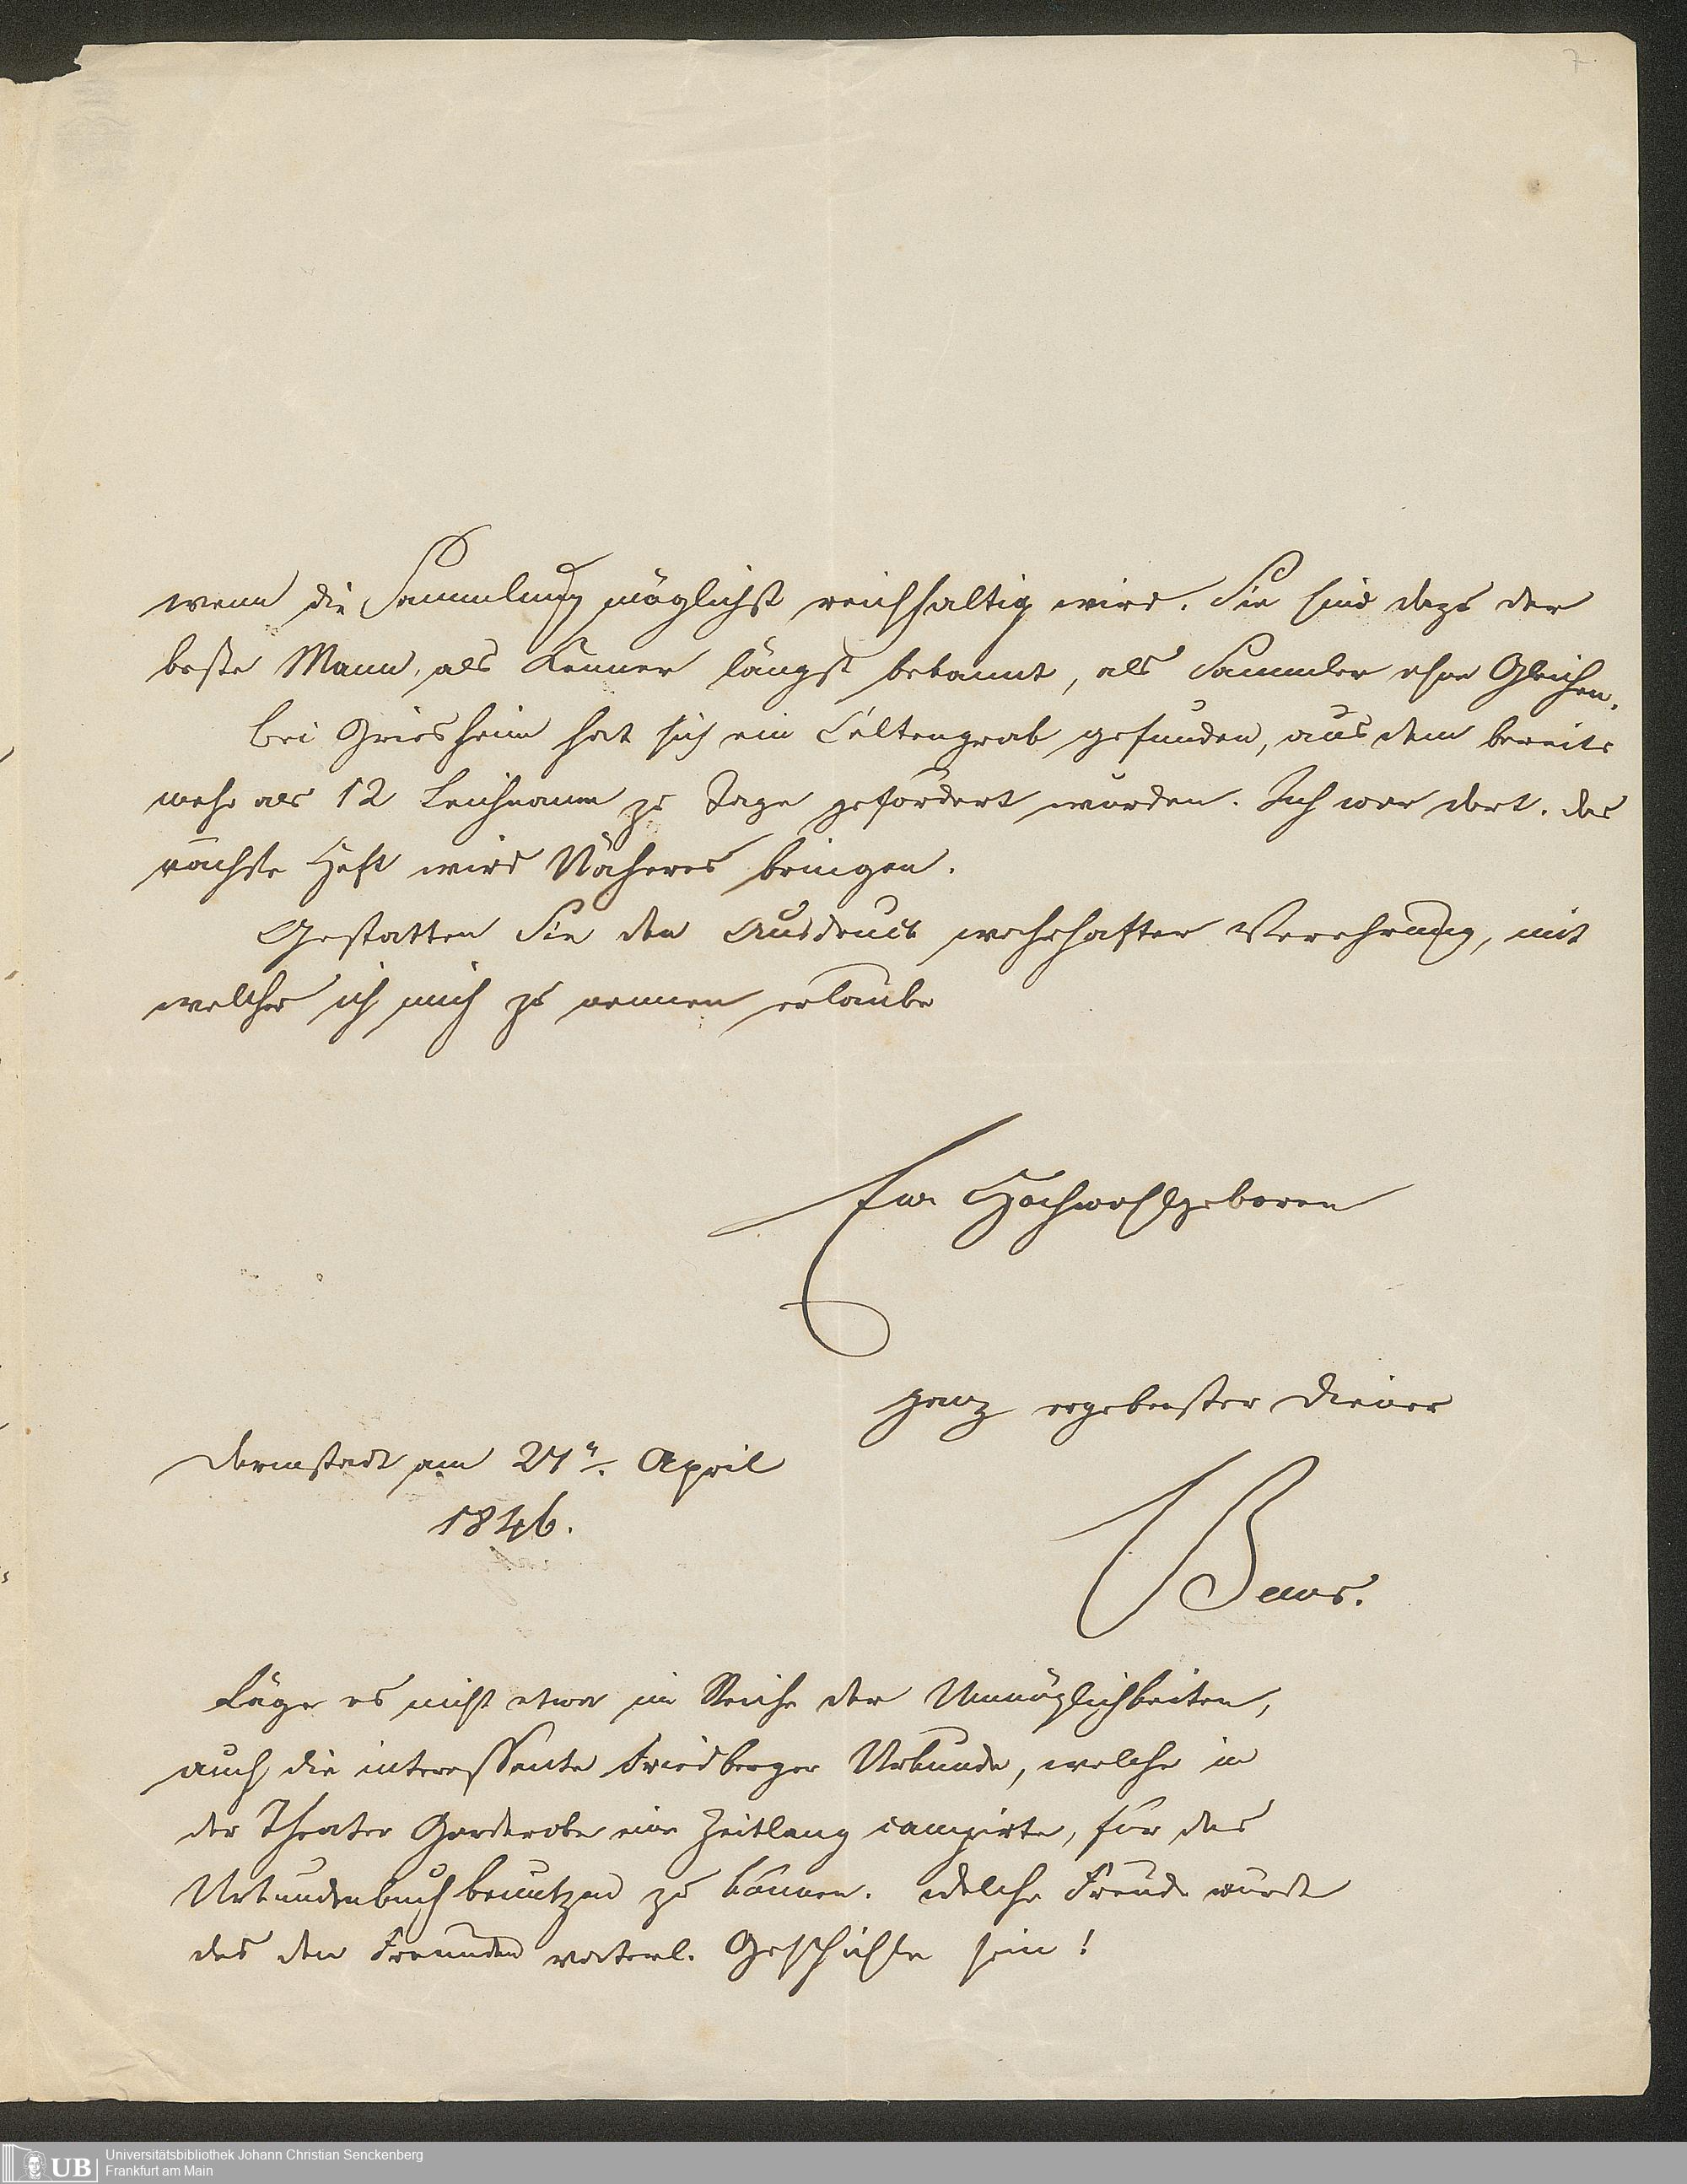 7.
wenn die Sammlung möglichst reichhaltig wird. Sie sind dazu der
beste Mann, als Kenner längst bekannt, als Sammler ohne Gleichen.
Bei Griesheim hat sich ein Celtengrab gefunden, aus dem bereits
mehr als 12 Leichname zu Tage gefördert wurden. Ich war dort. Das
nächste Heft wird Näheres bringen.
Gestatten Sie den Ausdruck wahrhafter Verehrung, mit
welcher ich mich zu nennen erlaube
Ew. Hochwohlgeboren
ganz ergebenster Diener
Darmstadt am 27n. April
1846.
Baur.
Läge es nicht etwa im Reiche der Unmöglichkeiten,
auch die interessante Friedberger Urkunde, welche in
der Theater Garderobe eine Zeitlang campirte, für das
Urkundenbuch benutzen zu können. Welche Freude würde
das den Freunden vaterl. Geschichte sein!
UB
Universitätsbibliothek Johann Christian Senckenberg
Frankfurt am Main